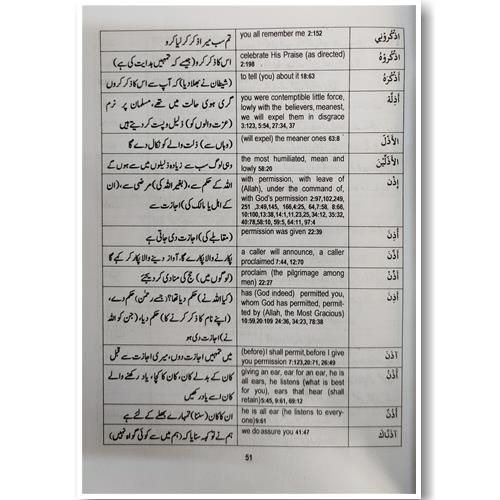 اذْكُرُونِي
you all remember me 2:152
تم سب میرا ذکر کر لیا کرو
اذْكُرُوهُ
celebrate His Praise (as directed)
2:198
اس کا ذکر کرو (جیسے کہ تمہیں ہدایت کی ہے)
أَذْكُرَهُ
to tell (you) about it 18:63
(شیطان نے بھلا دیا) کہ آپ سے اس کا ذکر کروں
أَذِلَّةٍ
you were contemptible little force,
lowly with the believers, meanest,
we will expel them in disgrace
3:123, 5:54, 27:34, 37
گری ہوی حالت میں تھے، مسلمان پر نرم
(عزت والوں کو) ذلیل و پست کر دیتے ہیں
الأَذَلَّ
(will expel) the meaner ones 63:8
(وہاں سے) ذلت والے کو نکال دے گا
الأَذَلِّينَ
the most humiliated, mean and
lowly 58:20
وہی لوگ سب سے زیادہ ذلیلوں میں سے ہوں گے
إِذْنِ
with permission, with leave of
(Allah), under the command of,
with God's permission 2:97,102,249,
251 ,3:49,145, 166,4:25, 64,7:58, 8:66,
10:100,13:38,14:1,11,23,25, 34:12, 35:32,
40:78,58:10, 59:5, 64:11, 97:4
اللہ کے حکم سے، (بغیر اللہ کی) مرضی سے، (ان
کے اہل یا مالک کی) اجازت سے
أُذِنَ
permission was given 22:39
(مقابلے کی) اجازت دی جاتی ہے
أَذَّنَ
a caller will announce, a caller
proclaimed 7:44, 12:70
پکارنے والا پکارے گا، آواز دینے والا پکار کر کہے گا
أَذِّنْ
proclaim (the pilgrimage among
men) 22:27
(لوگوں میں) حج کی منادی کر دیجئے
أَذِنَ
has (God indeed) permitted you,
whom God has permitted, permit-
ted by (Allah, the Most Gracious)
10:59,20:109 24:36, 34:23, 78:38
(کیا اللہ نے) حکم دیا تھا؟ (جسے رحمٰن) حکم دے،
(اپنے نام کا ذکر کرنے کا) حکم دیا، (جن کو اللہ
نے) اجازت دی ہو
آذَنَ
(before)I shall permit,before I give
you permission 7:123,20:71, 26:49
میں تمہیں اجازت دوں، میری اجازت سے قبل
أُذُنَ
giving an ear, ear for an ear, he is
all ears, he listens (what is best
for you), ears that hear (shall
retain)5:45, 9:61, 69:12
کان کے بدلے کان، کان کا کچا، یاد رکھنے والے
کان اسے یاد رکھیں
أُذُنُ
he is all ear (he listens to every-
one)9:61
ان کا کان (سننا) تمہارے بھلے کے لئے ہے
آذَنَّاكَ
we do assure you 41:47
ہم نے تو کہہ سنایا کہ (ہم میں سے کوئی گواہ نہیں)
51